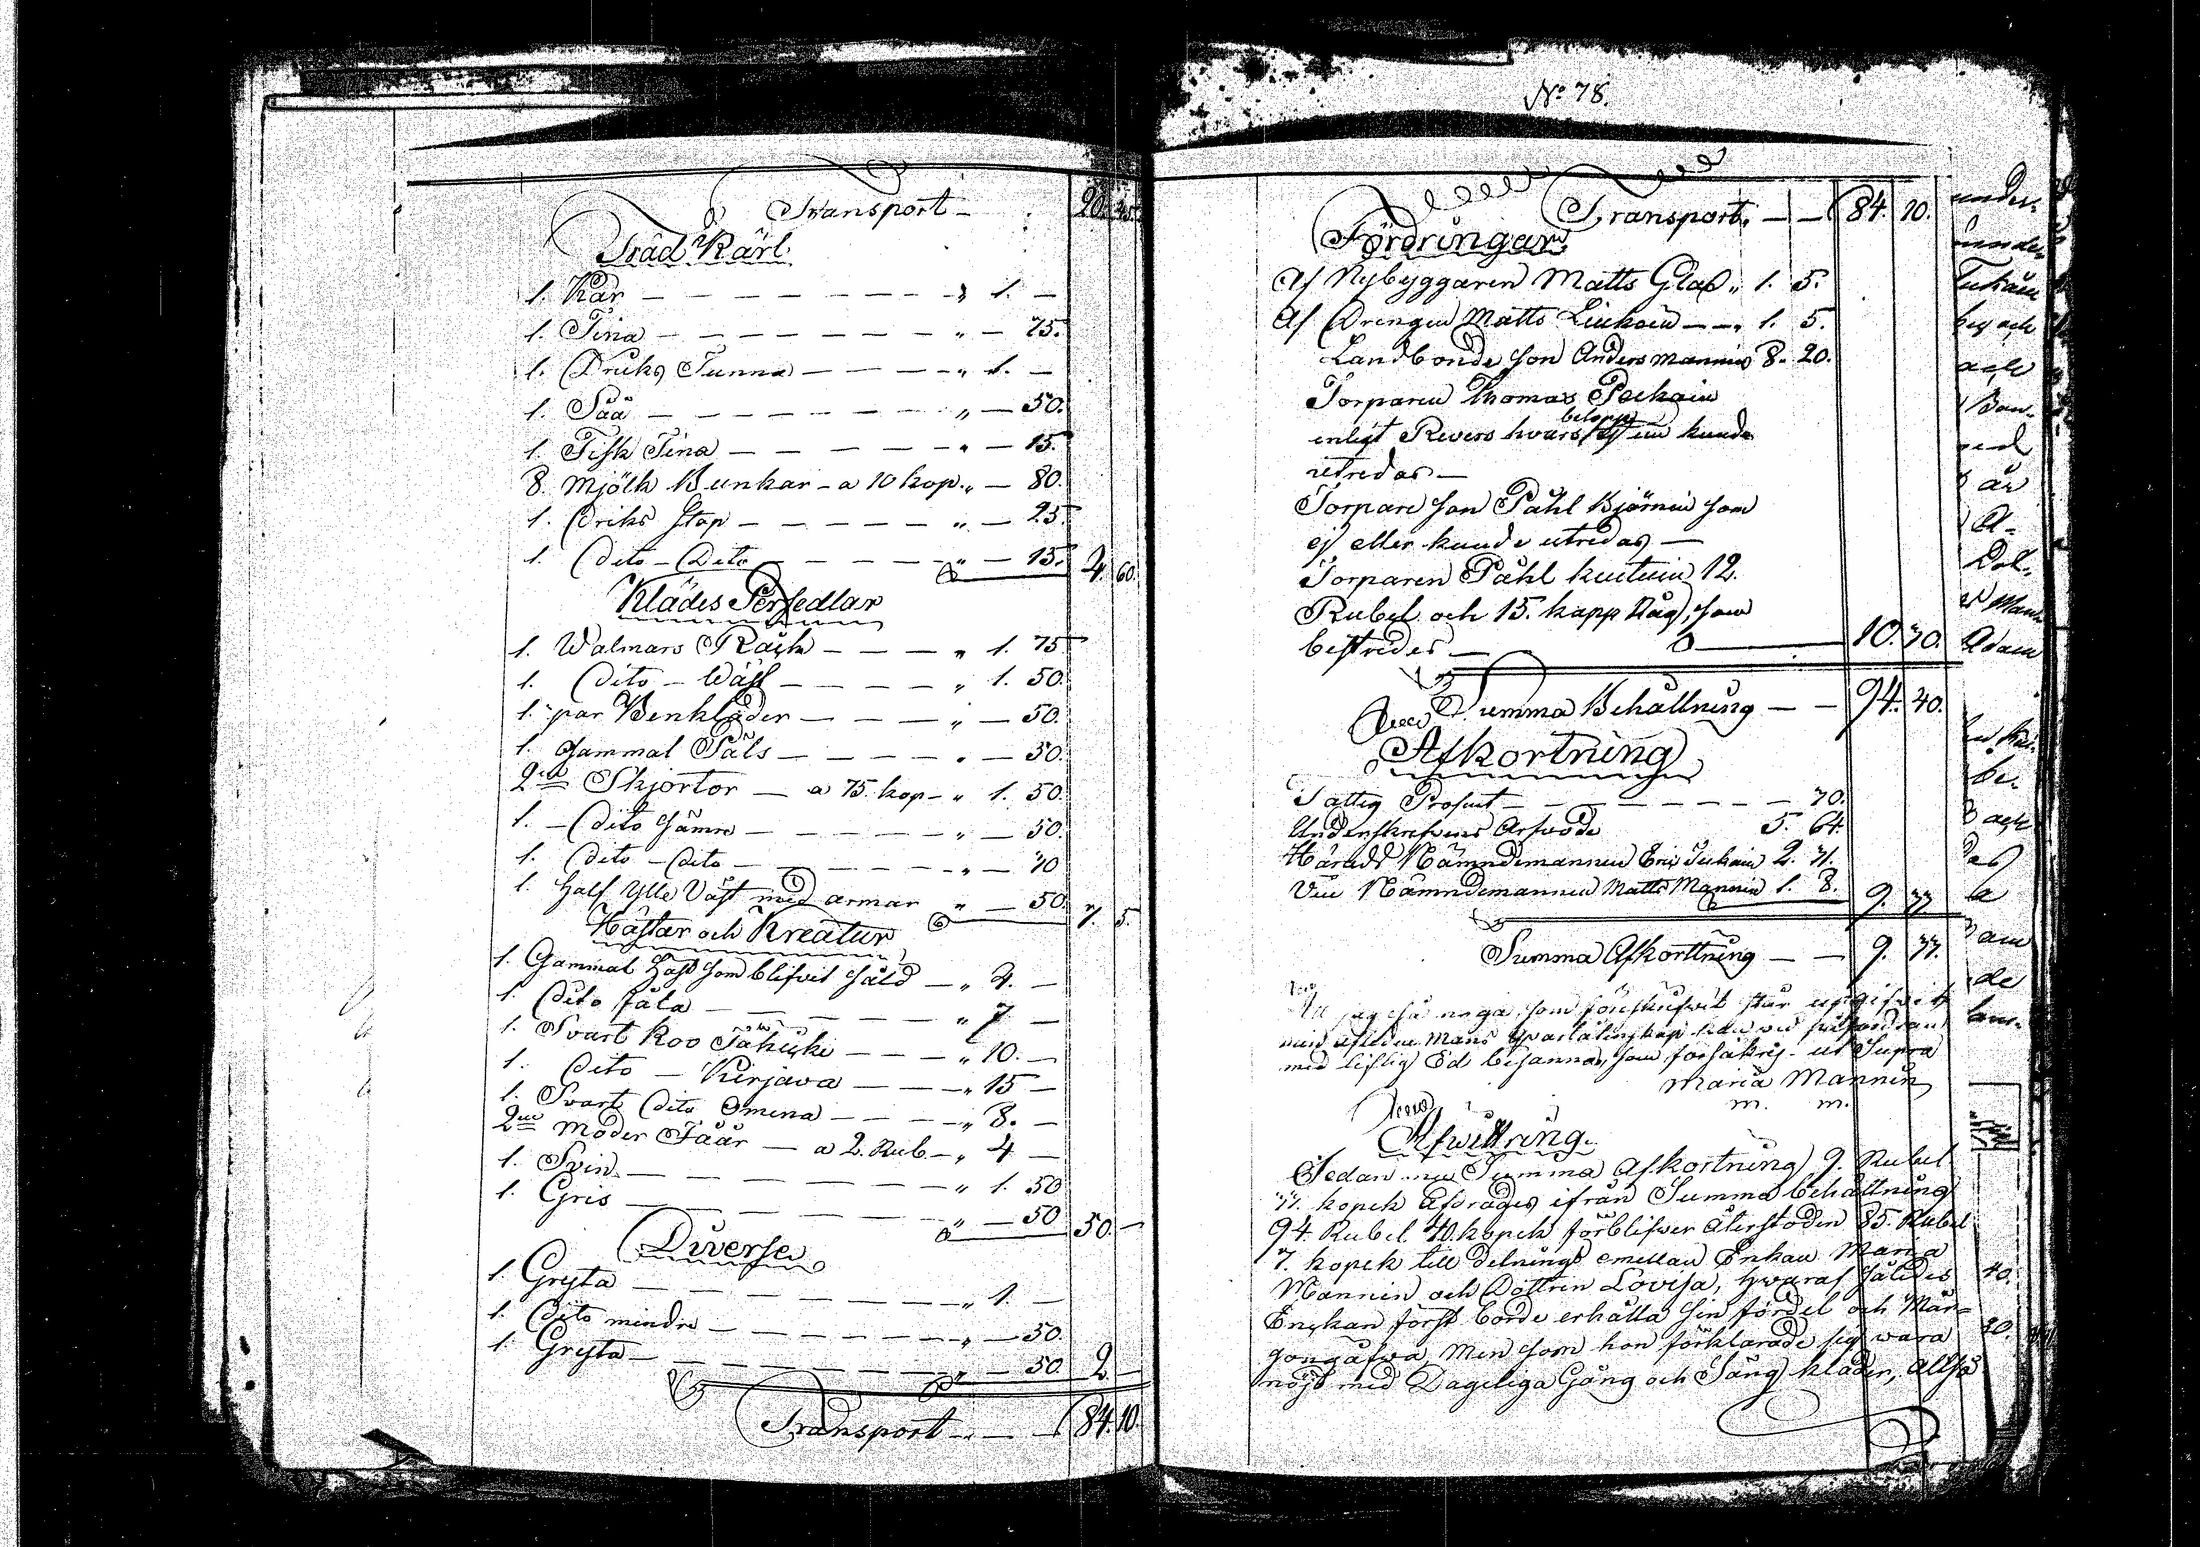 Transport - 20. 45.
Träd Kärl
1. Kar - - - - - - - " 1. -
1. Tina - - - - - - - " - 75.
1. Dricks Tunna - - - - " 1. -
1. Såå - - - - - - - " - 50.
1. Fisk Tina - - - - - " - 15.
8. Mjölk Bunkar - a 10 kop. " - 80.
1. Driks Stop - - - - - " - 25.
1. Dito - Dito - - - - " - 15. 4. 60.
Klädes Persedlar
1. Walmars Råck - - - " 1. 75
1. Dito - Wäst - - - - " 1. 50.
1. par Benkläder - - - " - 50.
1. Gammal Päls - - - - " - 50.
2ne Skjortor - a 75. kop - " 1. 50.
1. - Dito sämre - - - - " - 50.
1. Dito - Dito - - - - " - 10
1. Half Ylle Väst med armar " - 50. 7. 5.
Hästar och Kreatur
1. Gammal Häst som blifvit såld - " 4. -
1. Dito fåla - - - - - " 7 -
1. Svart Koo - - - " 10. -
1. Dito - Kirjava - - - " 15 -
1. Svart Dito Omena - - - " 8. -
2ne Moder Fåår - a 2. Rub. - " 4 -
1. Svin - - - - - - " 1. 50
1. Gris - - - - - - " - 50 50. -
Diverse
1. Gryta - - - - - - " 1. -
1. Dito mindre - - - - " - 50.
1. Gryta - - - - - - - 50 2. -
Transport - - - 84. 10.
No 78.
Transport. - - 84. 10.
Fordringar
Af Nybyggaren Matts Glad " 1. 5.
Af Drengen Matts - - " 1. 5.
Landbonde son Anders Mannin 8. 20.
Torparen Thomas
belopp
enligt Revers hvars ej nu kunde
utredas -
Torpare son Påhl Björnin som
ej eller kunde utredas -
Torparen Påhl 12.
Rubel och 15. kapp Råg, som
bestrides - 10. 30.
Summa Behållning - - 94. 40.
Afkortning
Fattig Prosent - - - - - - - 70.
Underskrefvens Arfvode 5. 64.
Härads Nämndemannen Eric 2. 71.
Vice Nämndemannen Matts Mannin 1. 8. 9. 77
Summa Afkorttning - - 9. 77.
jag så noga, som föreskrefvit står uppgifvit
min Mans qvarlåtenskap
med liflig Ed besanna, som försäkras ut Supra
Maria Mannin
m. m.
Afwittring
Sedan nu Summa Afkortning 9. Rubel
77. kopek Afdrages ifrån Summa behållning
94. Rubel 40. kopek förblifver Återstoden 85. Rubel
7. kopek till delnings emellan Enkan Maria
Mannin och Dottren Lovisa, hvaraf således
Enkan först borde erhålla sin fördel och Mår-
gongåfva, Men som hon förklarade sig wara
nöjd med Dageliga Gång och Säng kläder, Alltså